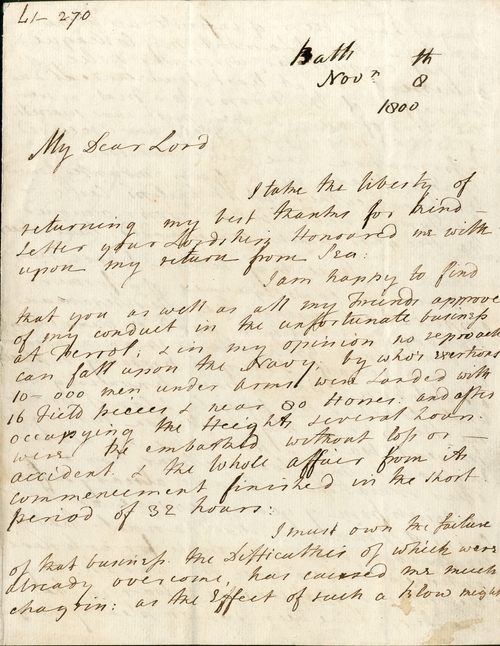 L1- 270
Bath th
Novr 8
1800
My Dear Lord
I take the liberty of
returning my best thanks for kind-
Letter your Lordship Honoured me with
upon my return from Sea:
I am happy to find
that you as well as all my Friends approve
of my conduct in the unfortunate business
at Ferrol, & in my opinion no reproach
can fall upon the Navy, by who's exertions
10-000 men under arms were Landed with
16 Field Pieces & near 80 Horses. and after
occupying the Heights several hours.
were the embarked without loss or -
accident. & the Whole affair from its
commencement finished in the short
period of 32 hours:
I must own the failure
of that business. the Difficulties of which were
already overcome, has caused me much
chagrin: as the Effect of such a Blow might